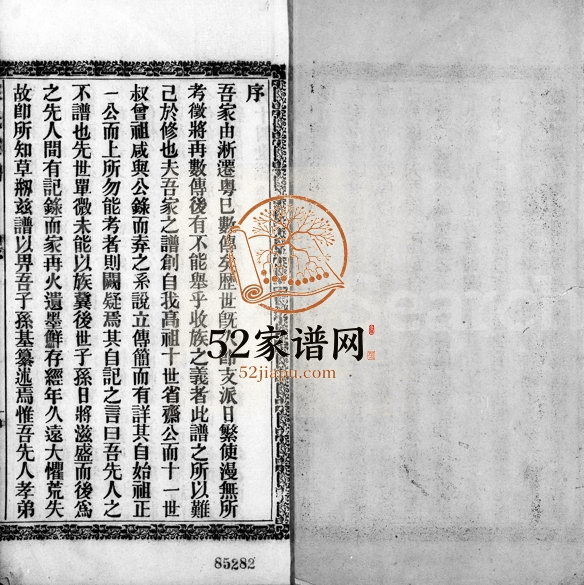 序
吾家由淅遷粤已數傳矣歷世既久卽支派日繁使漫無所
考徵將再數傳後有不能舉乎收族之義者此譜之所以難
已於修也夫吾家之譜創自我高祖十世省齋公而十一世
叔曾祖咸與公錄而弆之系說立傳簡而有詳其自始祖正
一公而上所勿能考者則闕疑焉其自記之言曰吾先人之
不譜也先世單微未能以族冀後世子孫日將滋盛而後爲
之先人間有記錄而家再火遺墨鮮存經年久遠大懼荒失
故卽所知草剏兹譜以畀吾子孫基纂述焉惟吾先人孝弟
52家谱网
52jiapu.com
85282